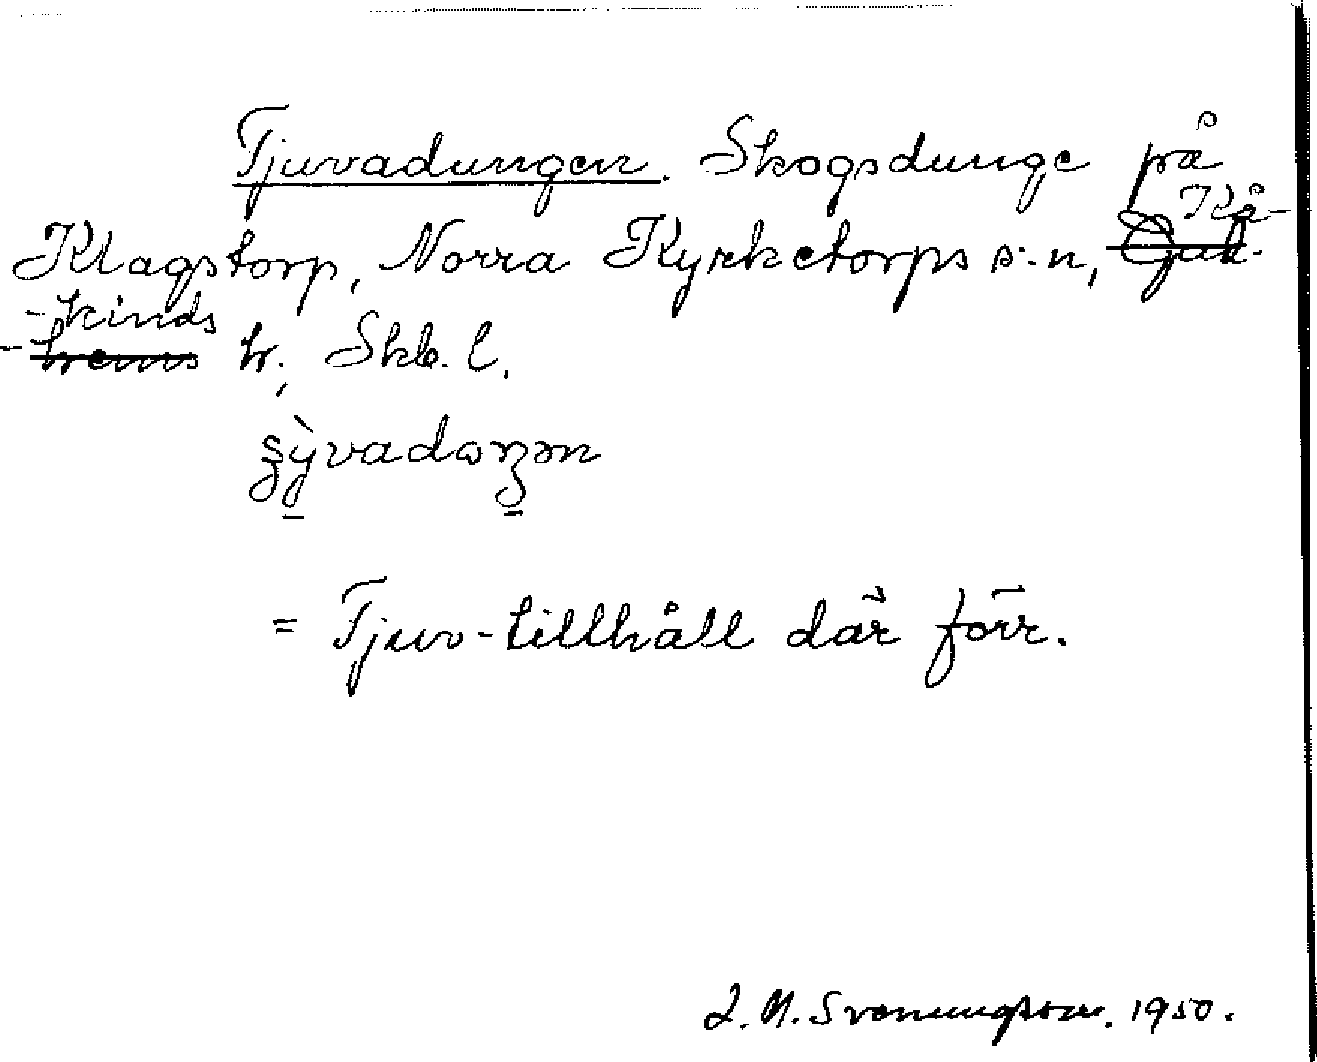 Tjuvadungen. Skogsdunge på
Klagstorp, Norra Kyrketorps s:n, Kå-
-kinds h:, Skb. l.
= Tjuv-tillhåll där förr.
Svenungsson. 1950.